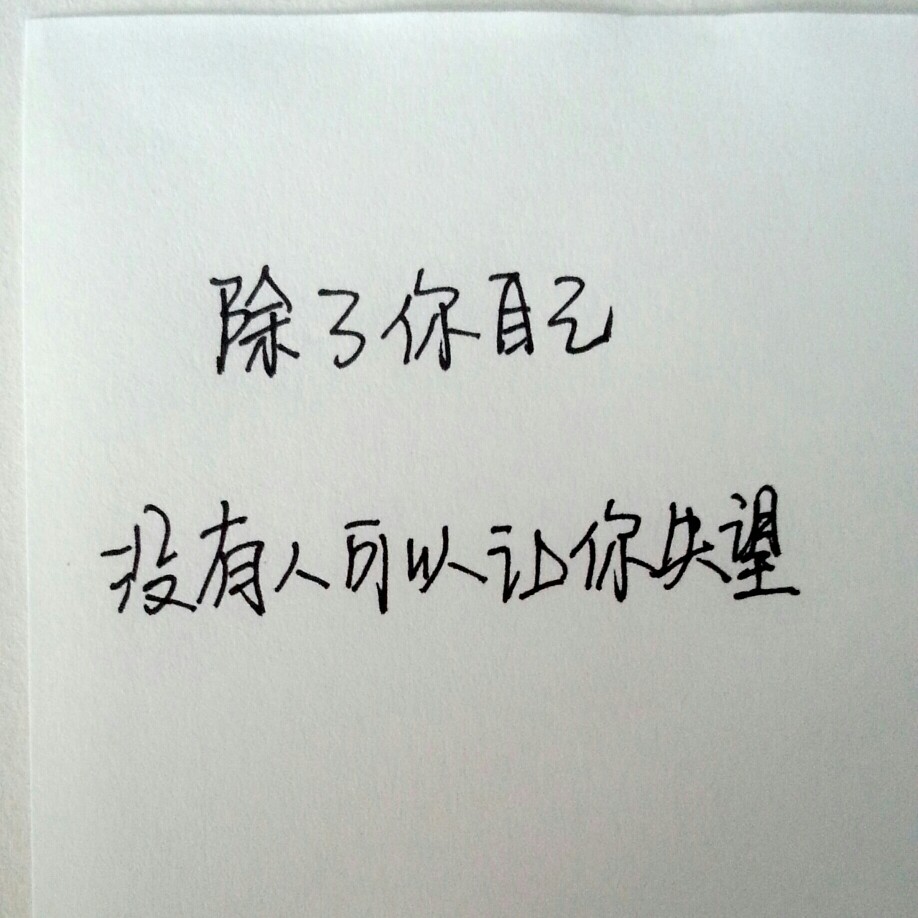 除了你自己
没有人可以让你失望